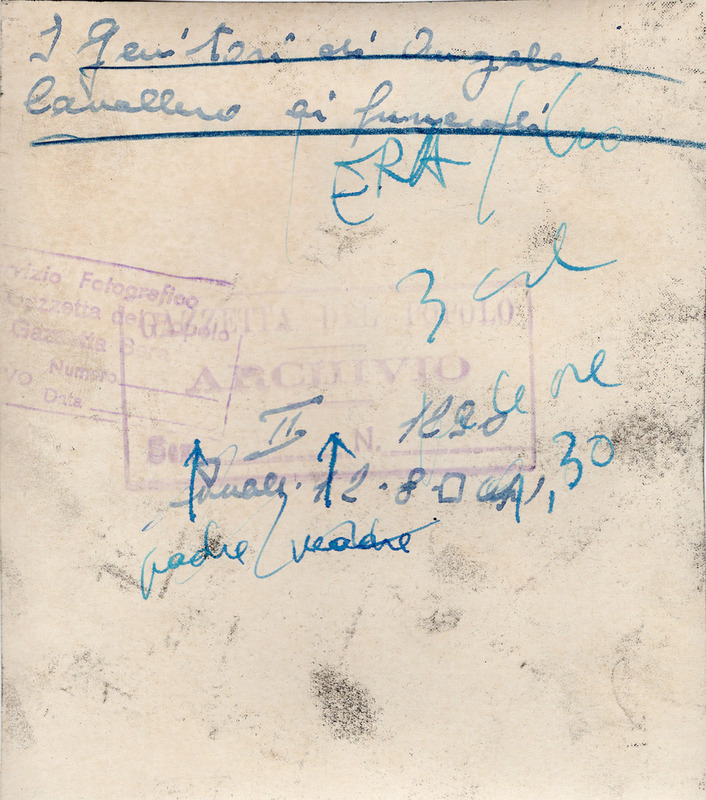 I Genitori di Angela
Cavallero ai funerali
ERA
3 col
vizio Fotografico
Gazzetta del Popolo
Gazzetta Sera
Numero
Data
GAZZETTA DEL POPOLO
ARCHIVIO
II N.
ore
12-8-
,30
padre madre